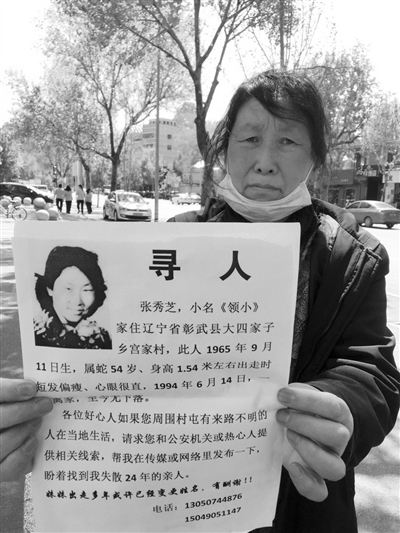 寻人
张秀芝，小名《领小》
家住辽宁省彰武县大四家子
乡宫家村，此人 1965 年 9 月
11 日生，属蛇 54 岁、身高 1.54 米左右出走时
短发偏瘦、心眼很直，1994 年 6 月 14 日，一
离家，至今无下落。
各位好心人如果您周围村屯有来路不明的
人在当地生活，请求您和公安机关或热心人提
供相关线索，帮我在传媒或网络里发布一下，
盼着找到我失散 24 年的亲人。
妹妹出走多年或许已经变更姓名，有酬谢!!
电话：13050744876
15049051147